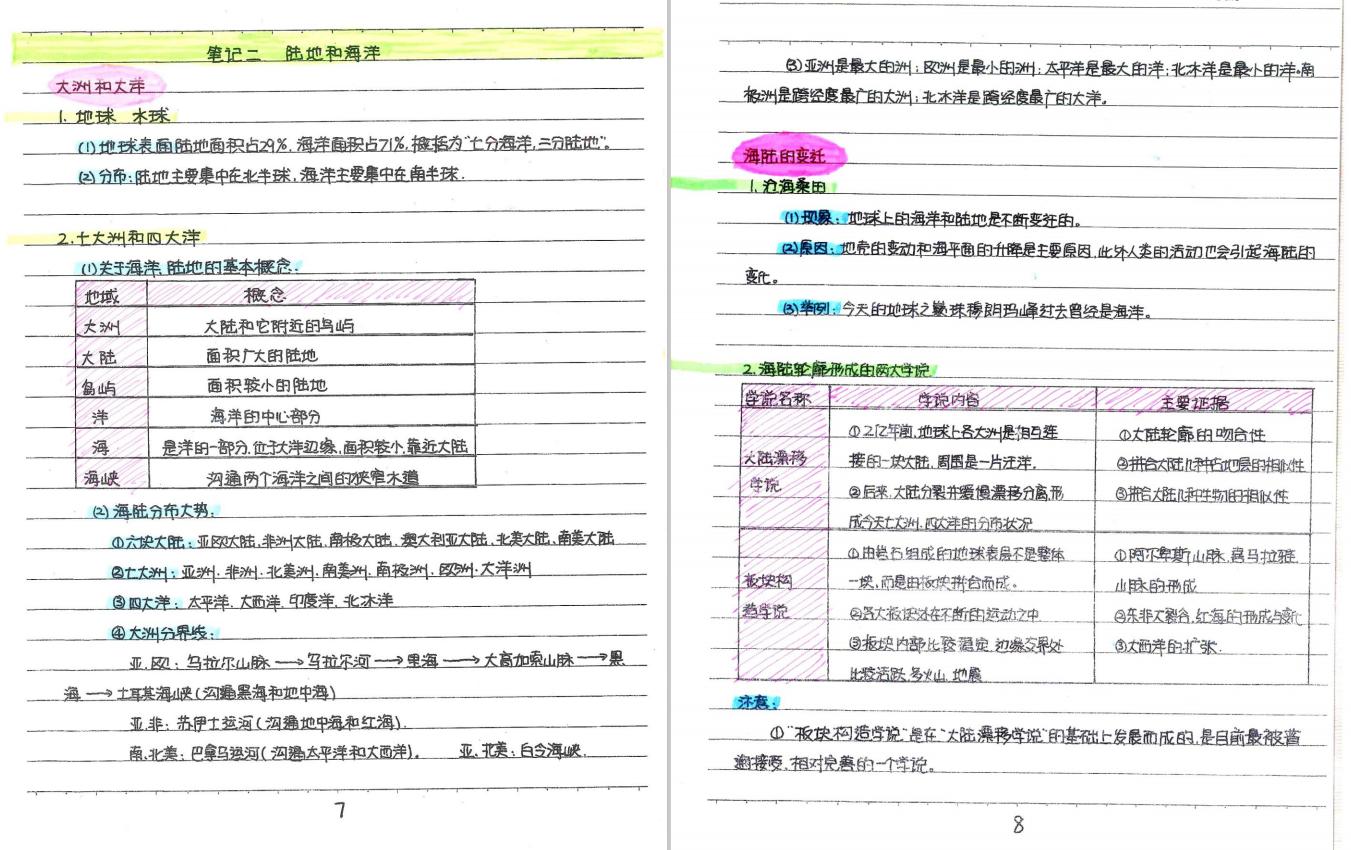 笔记二 陆地和海洋
大洲和大洋
1. 地球 水球
(1)地球表面陆地面积占29%，海洋面积占71%，概括为“七分海洋，三分陆地”。
(2)分布：陆地主要集中在北半球，海洋主要集中在南半球．
2.七大洲和四大洋
(1)关于海洋、陆地的基本概念．
地域 概念
大洲 大陆和它附近的岛屿
大陆 面积广大的陆地
岛屿 面积较小的陆地
洋 海洋的中心部分
海 是洋的一部分，位于大洋边缘，面积较小，靠近大陆
海峡 沟通两个海洋之间的狭窄水道
(2)海陆分布大势：
①六块大陆：亚欧大陆、非洲大陆、南极大陆、澳大利亚大陆、北美大陆、南美大陆
②七大洲：亚洲、非洲、北美洲、南美洲、南极洲、欧洲、大洋洲
③四大洋：太平洋、大西洋、印度洋、北冰洋
④大洲分界线：
亚、欧：乌拉尔山脉→乌拉尔河→里海→大高加索山脉→黑
海→土耳其海峡(沟通黑海和地中海)
亚、非：苏伊士运河(沟通地中海和红海)．
南、北美：巴拿马运河(沟通太平洋和大西洋)。 亚、北美：白令海峡．
7
(3)亚洲是最大的洲；欧洲是最小的洲；太平洋是最大的洋；北冰洋是最小的洋。南
极洲是跨经度最广的大洲；北冰洋是跨经度最广的大洋。
海陆的变迁
1.沧海桑田
(1)现象：地球上的海洋和陆地是不断变迁的。
(2)原因：地壳的变动和海平面的升降是主要原因，此外人类的活动也会引起海陆的
变化。
(3)举例：今天的地球之巅珠穆朗玛峰过去曾经是海洋。
2.海陆轮廓形成的两大学说
学说名称 学说内容 主要证据
①2亿年前，地球上各大洲是相互连 ①大陆轮廓的吻合性
大陆漂移 接的一块大陆，周围是一片汪洋． ②拼合大陆几种古地层的相似性
学说 ②后来，大陆分裂并缓慢漂移分离，形 ③拼合大陆几种生物的相似性
成今天七大洲、四大洋的分布状况
①由岩石组成的地球表层不是整体 ①阿尔卑斯山脉、喜马拉雅
板块构 一块，而是由板块拼合而成。 山脉的形成
造学说 ②各大板块处在不断的运动之中 ②东非大裂谷、红海的形成与变化
③板块内部比较稳定，边缘交界处 ③大西洋的扩张．
比较活跃，多火山、地震
注意：
①“板块构造学说”是在“大陆漂移学说”的基础上发展而成的，是目前最被普
遍接受，相对完善的一个学说。
8